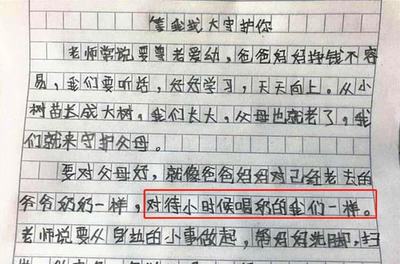 等我长大守护你
老师常说要尊老爱幼,爸爸妈妈挣钱不容
易,我们要听话,好好学习,天天向上。从小
树苗长成大树,我们长大,父母也就老了,我
们就来守护父母。
要对父母好,就像爸爸妈妈对已经老去的
爷爷奶奶一样,对待小时候喝奶的我们一样。
老师说要从身边的小事做起,帮妈妈洗脚,扫